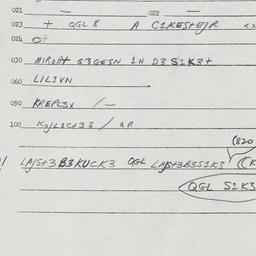 021 — 022 —
023 + QGL 8 A C1KES+EJR xx
024 O+
030 MIROA+ G3GESN 1N D3 S1K3+
060 L1L1VN
090 KREPL3X / —
100 KOJL3C+3S / QR
(820
LAJS+3 B3KUCK3 QGL LAJS+3B3S1K3 (CK
QGL S1K3